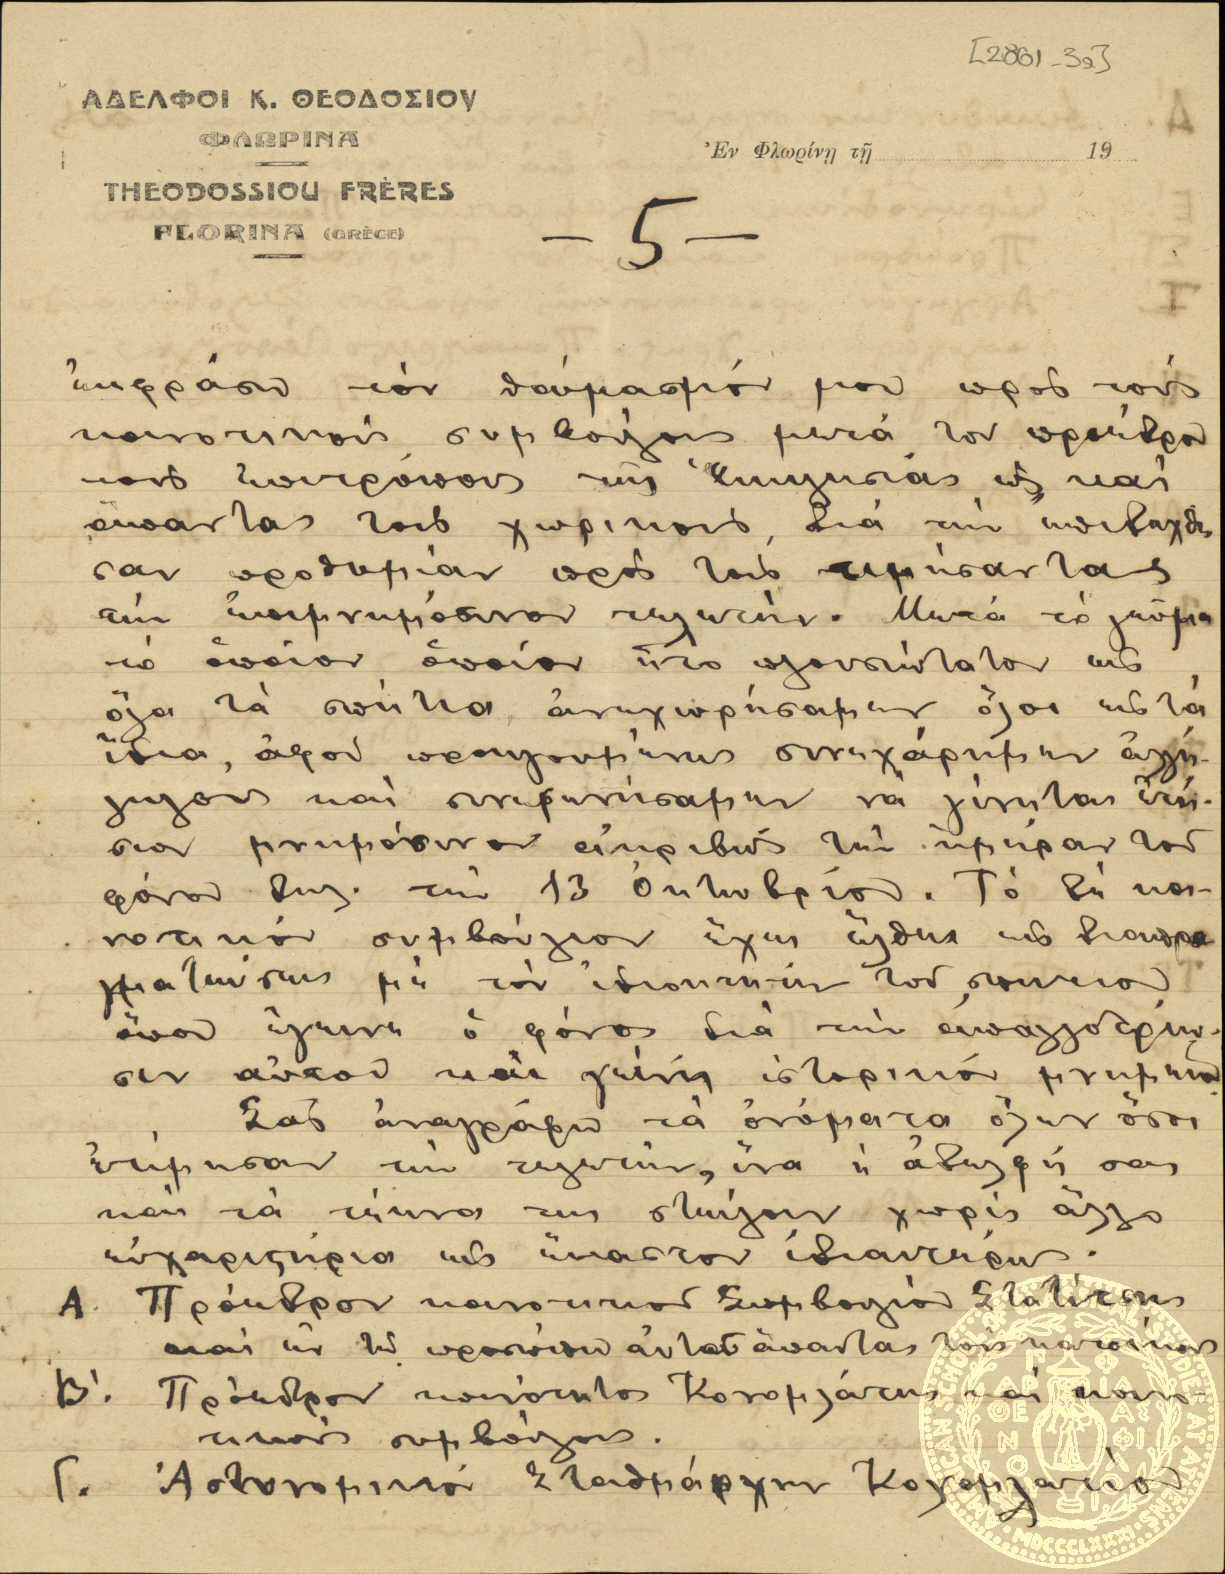 [2861_39]
ΑΔΕΛΦΟΙ Κ. ΘΕΟΔΟΣΙΟΥ
ΦΛΩΡΙΝΑ
THEODOSSIOU FRÈRES
FLORINA (GRÈCE)
Ἐν Φλωρίνῃ τῇ 19
– 5 –
ἐκφράσω τόν θαυμασμόν μου πρός τούς
κοινοτικούς συμβούλους μετά τοῦ προέδρου
τούς ἐπιτρόπους τῆς Ἐκκλησίας ὡς καί
ἅπαντας τούς χωρικούς, διά τήν ἐπιδειχθεῖ
σαν προθυμίαν πρός τούς τιμήσαντας
τήν ἐπιμνημόσυνον τελετήν. Μετά τό γεῦμα
τό ὁποῖον ὁποῖον ἦτο πλουσιώτατον εἰς
ὅλα τά σπήτια, ἀνεχωρήσαμεν ὅλοι εἰς τά
ἴδια, ἀφοῦ προηγουμένως συνεχάρημεν ἀλλή-
λους καί συνεφωνήσαμεν νά γίνηται ἐτή-
σιον μνημόσυνον ἀκριβῶς τήν ἡμέραν τοῦ
φόνου δηλ. τήν 13 Ὀκτωβρίου. Τό δέ κοι-
νοτικόν συμβούλιον ἔχει ἔλθει εἰς διαπρα
γματεύσεις μέ τόν ἰδιοκτήτην τοῦ σπητιοῦ
ὅπου ἔγεινε ὁ φόνος διά τήν ἀπαλλοτρίω-
σιν αὐτοῦ καί γείνῃ ἱστορικόν μνημεῖον.
Σᾶς ἀναγράφω τά ὀνόματα ὅλων ὅσοι
ἐτίμησαν τήν τελετήν, ἵνα ἡ ἀδελφή σας
καί τά τέκνα της στείλουν χωρίς ἄλλο
εὐχαριστήρια εἰς ἕκαστον ἰδιαιτέρως.
Α. Πρόεδρον κοινοτικοῦ Συμβουλίου Στατίτσης
καί ἐν τῷ προσώπῳ αὐτοῦ ἅπαντας τούς κατοίκους
Β΄. Πρόεδρον κοινότητος Κονομλάτης καί κοινο-
τικούς συμβούλους.
Γ. Ἀστυνομικόν Σταθμάρχην Κονομλατίου